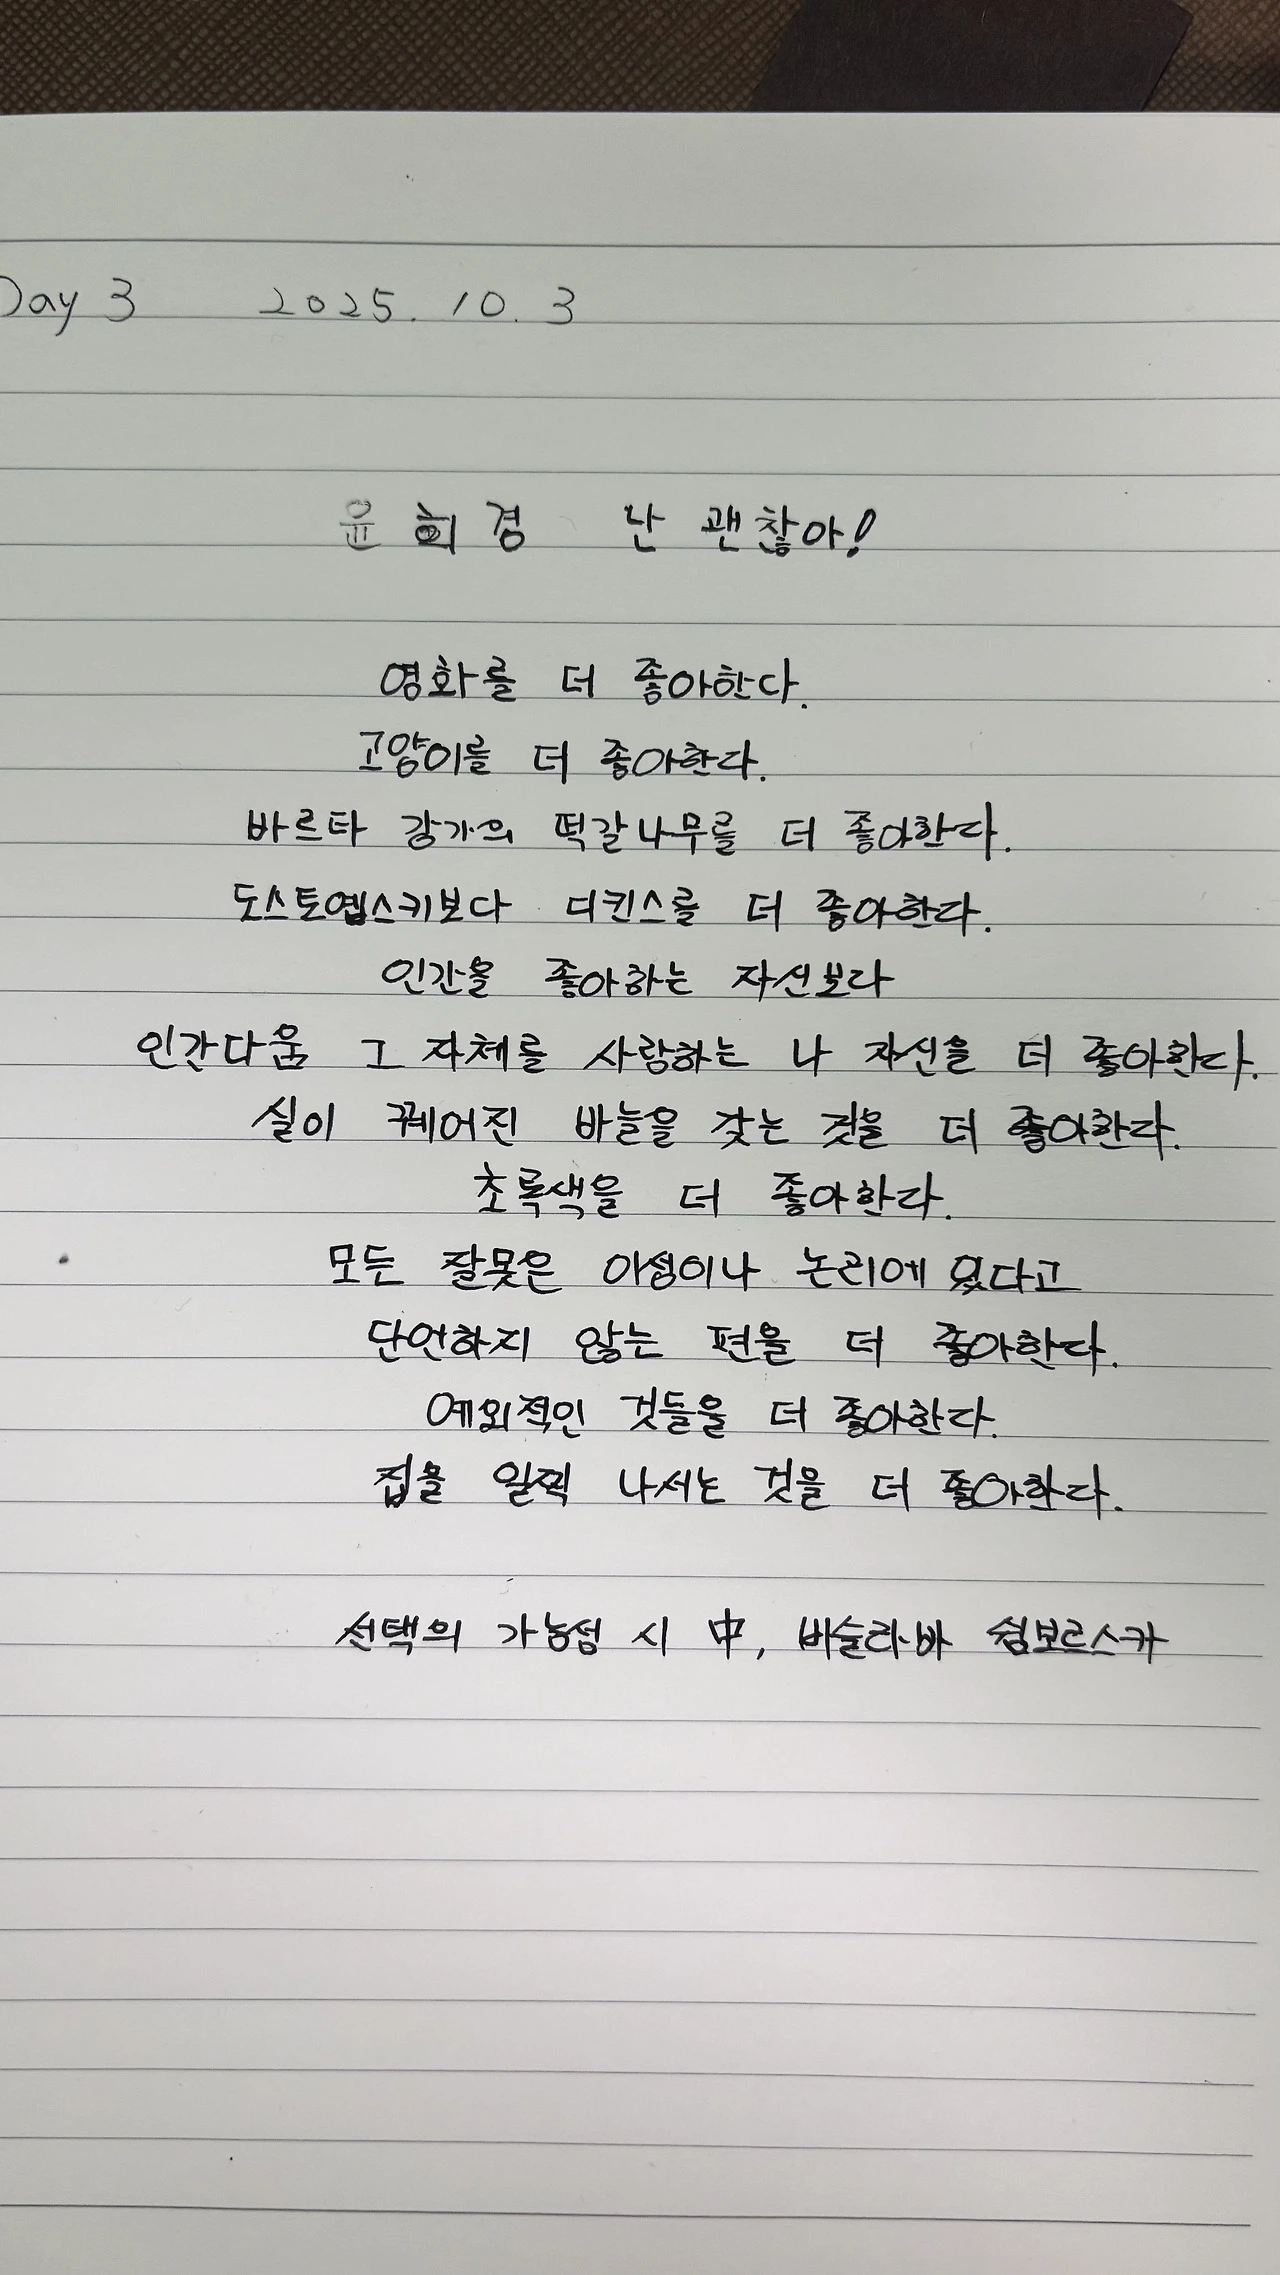 Day 3 2025. 10. 3
윤희경 난 괜찮아!
영화를 더 좋아한다.
고양이를 더 좋아한다.
바르타 강가의 떡갈나무를 더 좋아한다.
도스토옙스키보다 디킨스를 더 좋아한다.
인간을 좋아하는 자신보다
인간다움 그 자체를 사랑하는 나 자신을 더 좋아한다.
실이 꿰어진 바늘을 갖는 것을 더 좋아한다.
초록색을 더 좋아한다.
모든 잘못은 이성이나 논리에 있다고
단언하지 않는 편을 더 좋아한다.
예외적인 것들을 더 좋아한다.
집을 일찍 나서는 것을 더 좋아한다.
선택의 가능성 시 中, 비슬라바 쉼보르스카